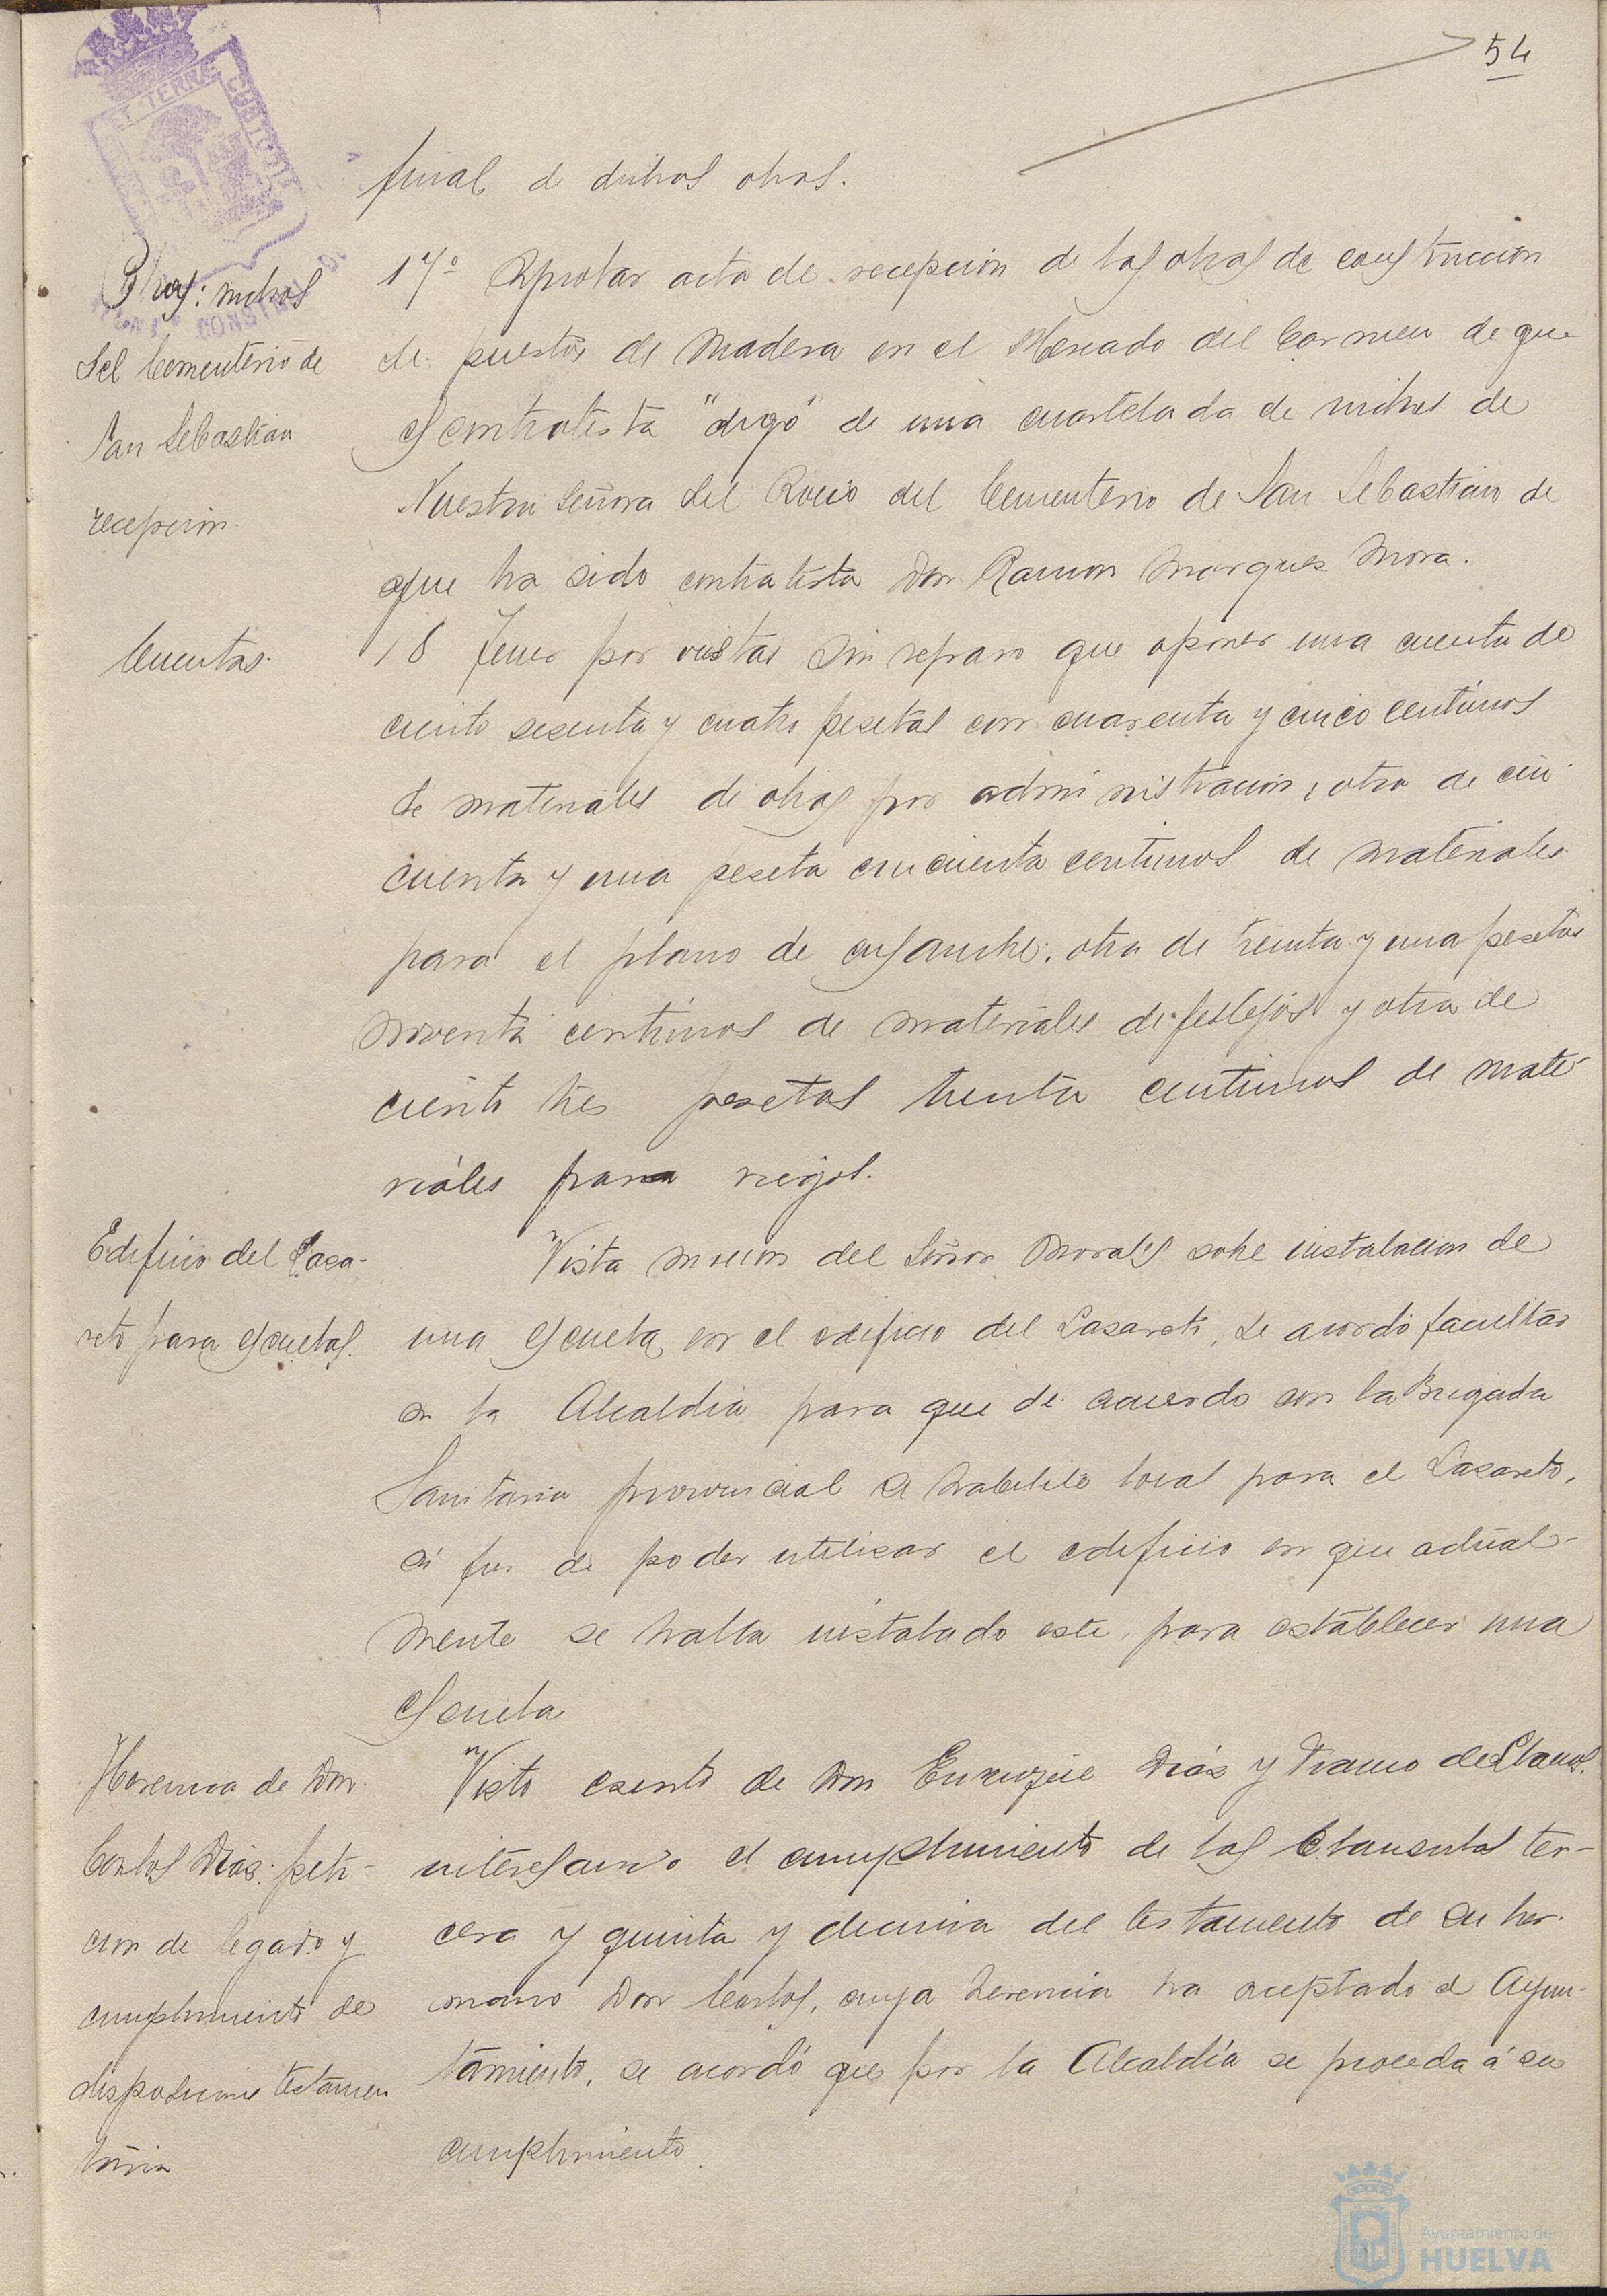 54
final de dichas obras.
Obras: nichos
del Cementerio de
San Sebastian
recepcion.
17º Aprobar acta de recepcion de las obras de construccion
de puestos de madera en el Mercado del Carmen de que
es contratista "digo" de una cuartelada de nichos de
Nuestra Señora del Rocio del Cementerio de San Sebastian de
que ha sido contratista Don Ramon Marquez Mora.
Cuentas.
18 Tener por vistas sin reparo que oponer una cuenta de
ciento sesenta y cuatro pesetas con cuarenta y cinco centimos
de materiales de obras por administracion; otra de cin-
cuenta y una peseta cincuenta centimos de materiales
para el plano de ensanche; otra de treinta y una pesetas
noventa centimos de materiales de festejos y otra de
ciento tres pesetas treinta centimos de mate-
riales para riegos.
Edificio del Laza-
reto para escuelas.
Vista mocion del Señor Morales sobre instalacion de
una escuela en el edificio del Lazareto, se acordó facultar
a la Alcaldia para que de acuerdo con la Brigada
Sanitaria provincial se habilite local para el Lazareto,
a fin de poder utilizar el edificio en que actual-
mente se halla instalado este, para establecer una
escuela
Herencia de Don
Carlos Diaz: peti-
cion de legado y
cumplimiento de
disposiciones testamen
taria
Visto escrito de Don Enrique Diaz y Franco de Llanos,
interesando el cumplimiento de las Clausulas ter-
cera y quinta y decima del testamento de su her-
mano Don Carlos, cuya herencia ha aceptado el Ayun-
tamiento, se acordó que por la Alcaldía se proceda á su
cumplimiento
Ayuntamiento de
HUELVA